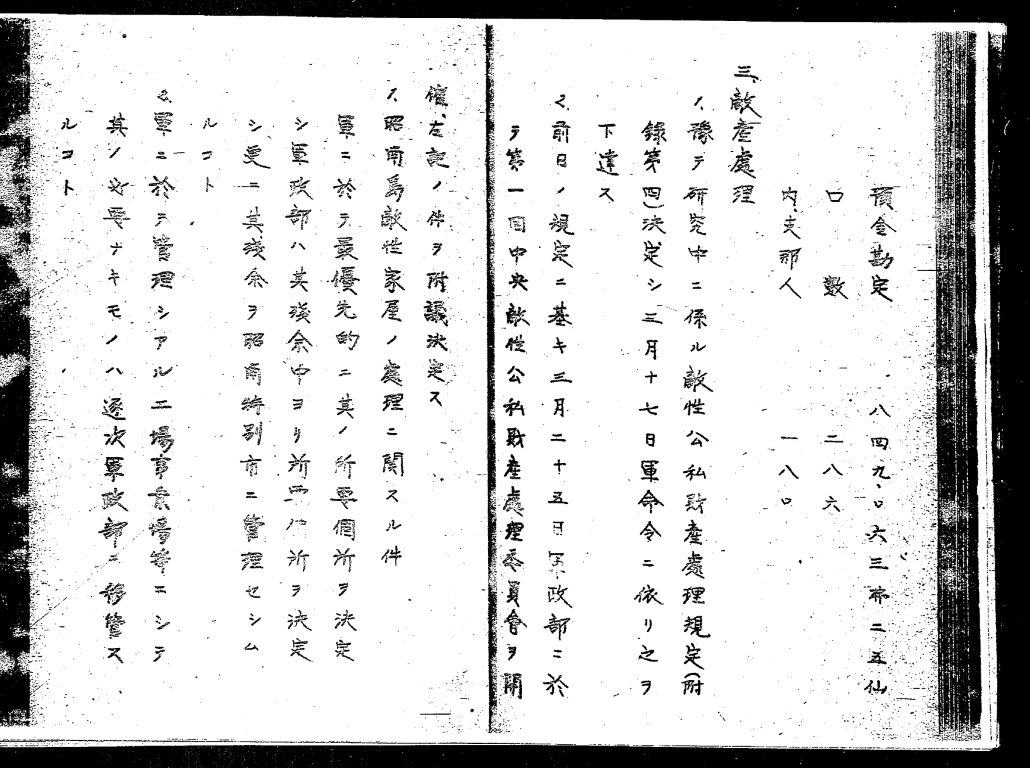 預金勘定　八四九、〇六三弗二五仙
口　數　二八六
内支那人　一八〇
三、敵産處理
1、豫テ研究中ニ係ル敵性公私財産處理規定(附
錄第四)決定シ三月十七日軍命令ニ依リ之ヲ
下達ス
2、前日ノ規定ニ基キ三月二十五日軍政部ニ於
テ第一回中央敵性公私財産處理委員會ヲ開
催、左記ノ件ヲ附議決定ス
1、昭南島敵性家屋ノ處理ニ関スル件
軍ニ於テ最優先的ニ其ノ所要個所ヲ決定
シ軍政部ハ其殘余中ヨリ所要個所ヲ決定
シ更ニ其殘余ヲ昭南特別市ニ管理セシム
ルコト
2、軍ニ於テ管理シアル工場事業場等ニシテ
其ノ必要ナキモノハ逐次軍政部ニ移管ス
ルコト